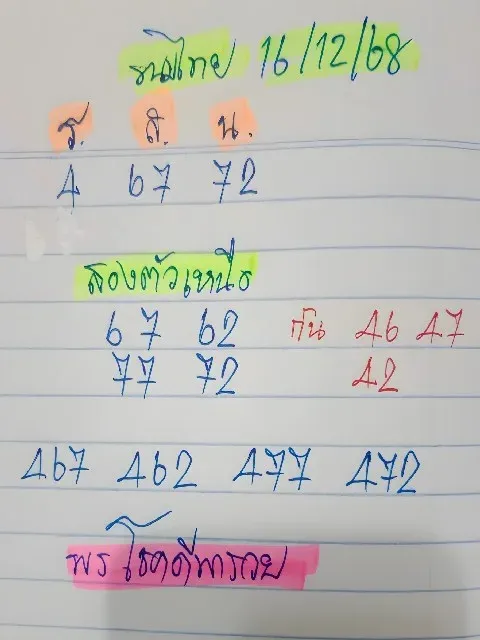 ขนมไทย 16/12/68
ร. ส. น.
4 67 72
สองตัวเหนือ
67 62 กัน 46 47
77 72 42
467 462 477 472
พร โชคดีพารวย